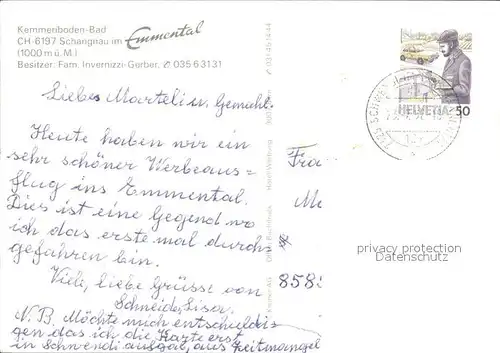 Kemmeriboden-Bad
CH-6197 Schangnau im Emmental
(1000 m ü. M.)
Besitzer: Fam. Invernizzi-Gerber, ✆ 035 6 31 31
HELVETIA 50
Liebes Marteli u. Gemahl.
Heute haben wir ein
sehr schöner Werbeaus=
flug ins Emmental.
Dies ist eine Gegend wo
ich das erste mal durch=
gefahren bin.
Viele, liebe Grüsse von
Schneider, Lisa.
N.B. Möchte mich entschuldi=
gen das ich die Karte erst
in Schwendi ausgab, aus Zeitmangel
Fra
Me
858
privacy protection
Datenschutz